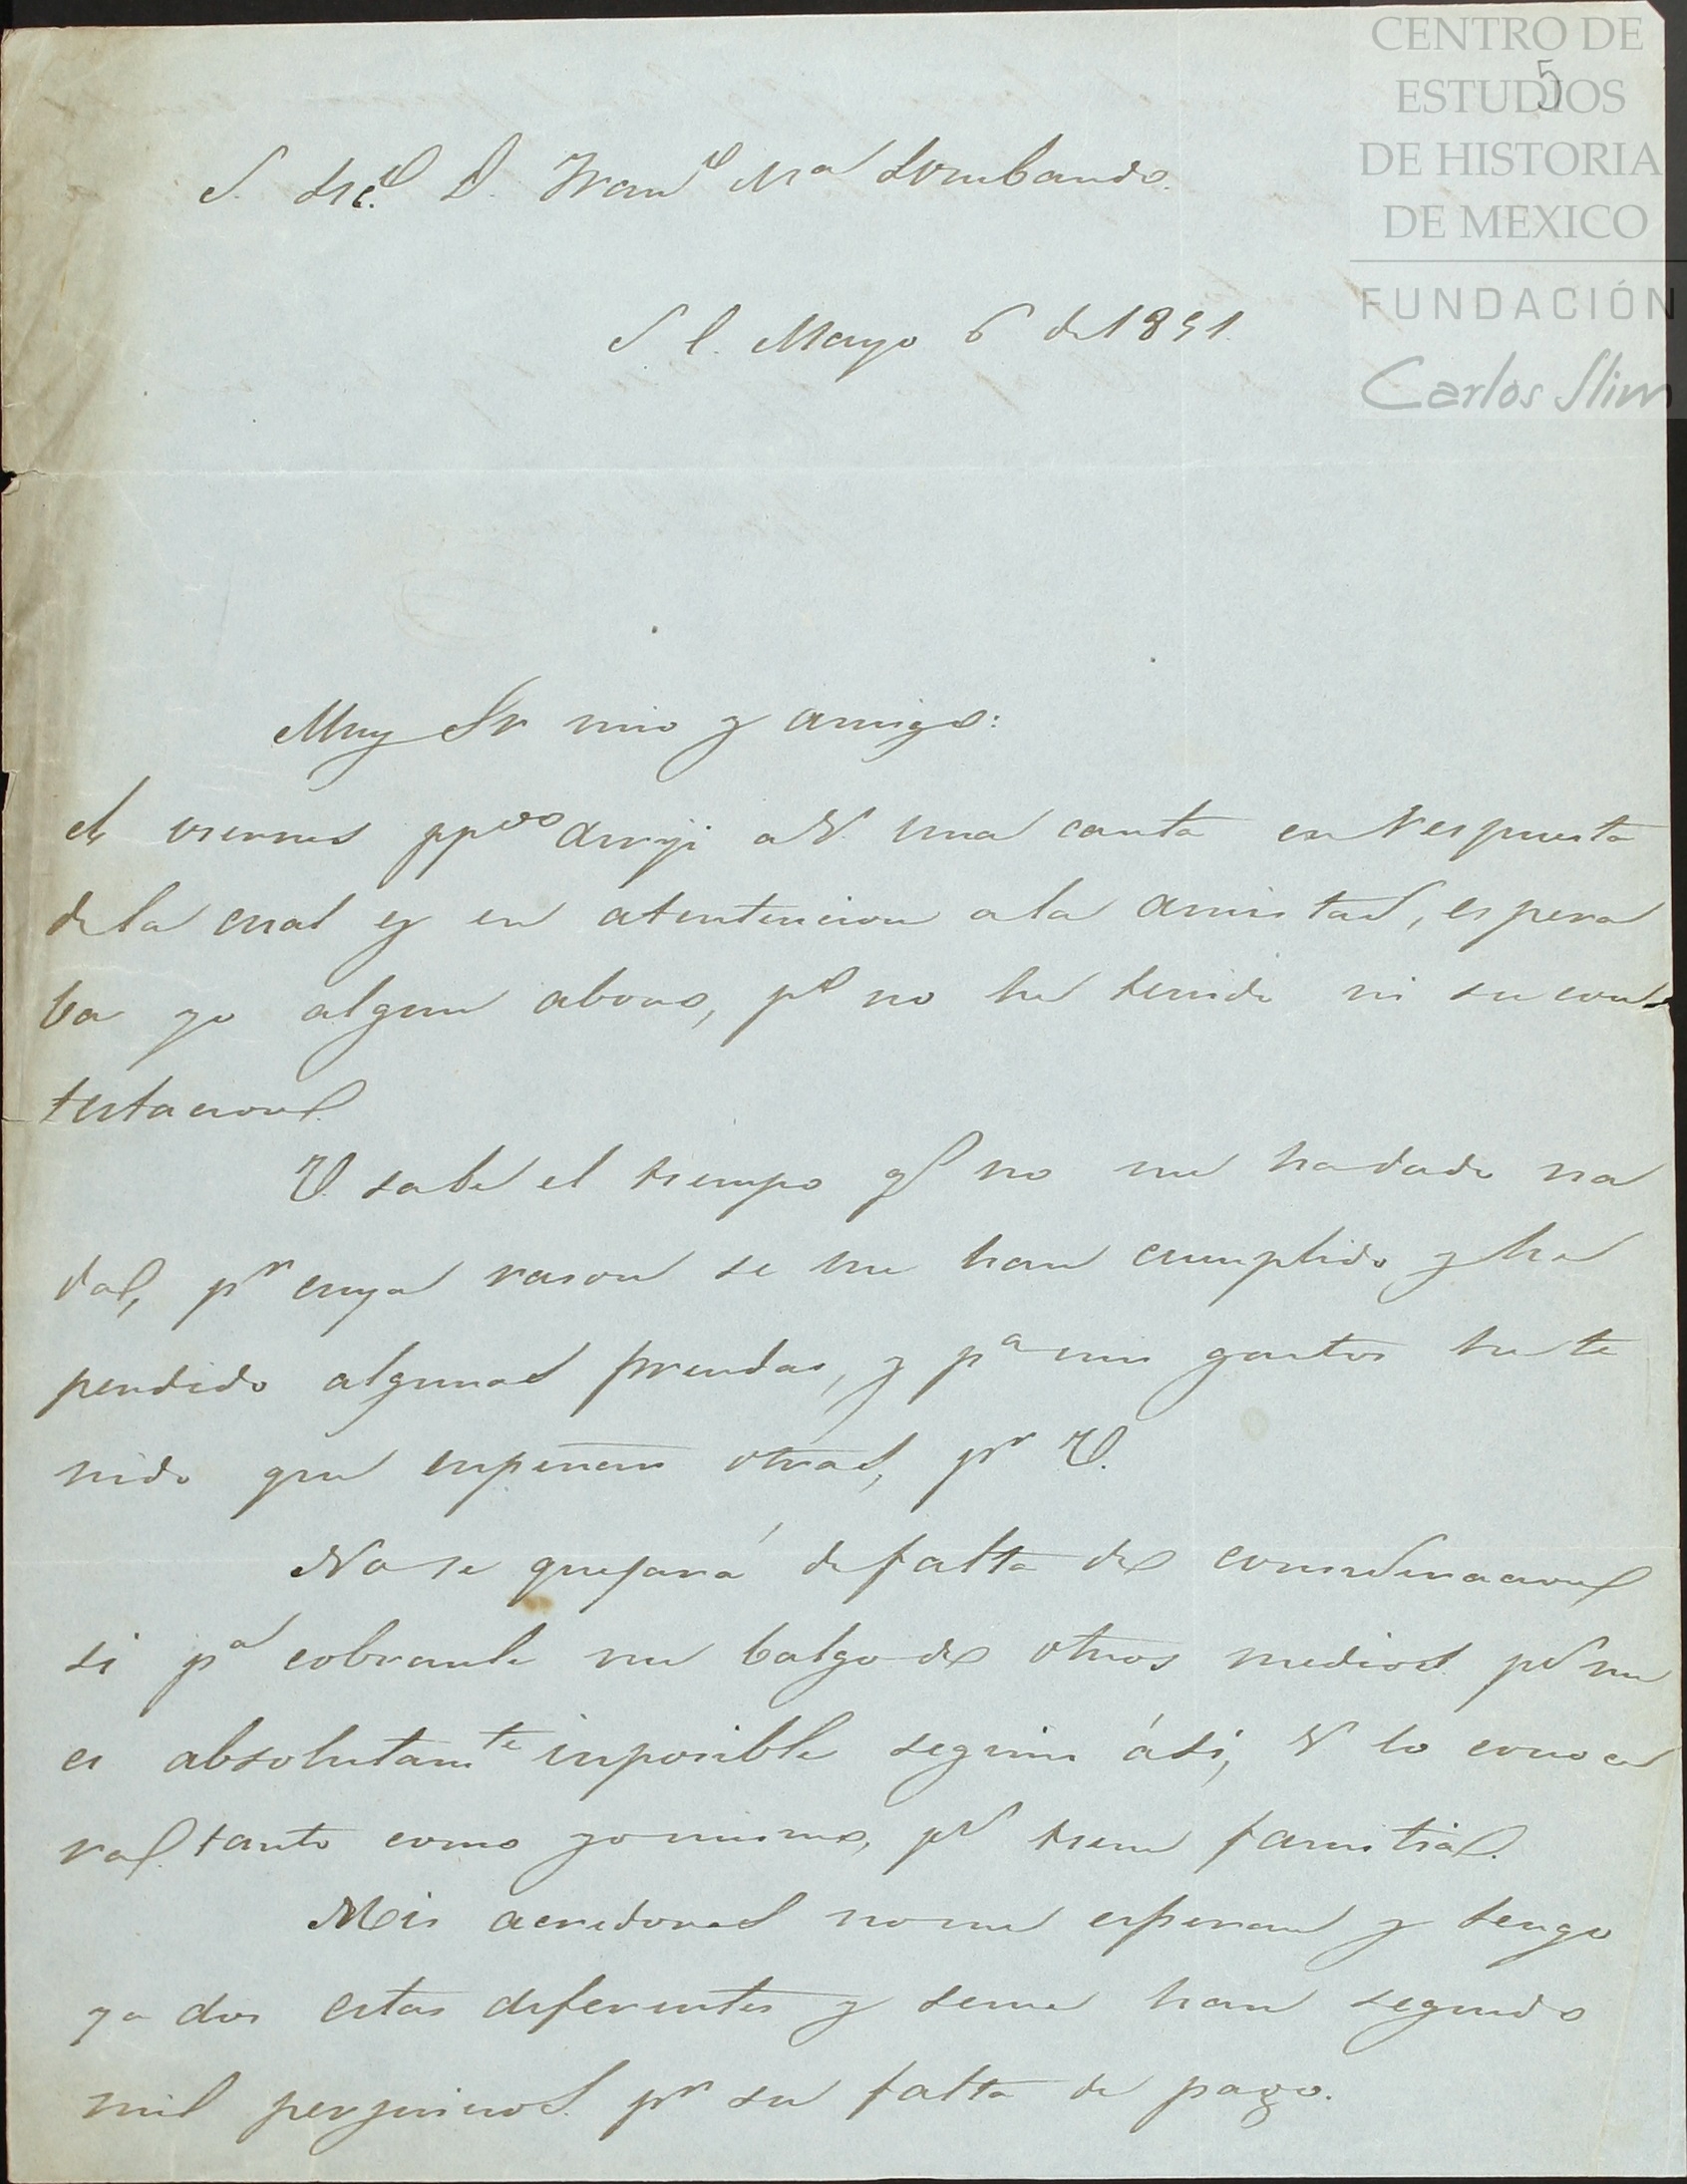 CENTRO DE
ESTUDIOS
DE HISTORIA
DE MEXICO
FUNDACIÓN
Carlos Slim
5
S. Lic.do D. Fran.co Ma Lombardo.
S C. Mayo 6 de 1851.
Muy Sr mio y amigo:
el viernes pp.do dirigi a V. una carta en respuesta
de la cual y en atentencion a la amistad, espera
ba yo algun abono, po no he tenido ni su con
testacion.
V. sabe el tiempo qe no me ha dado na
da, pr cuya rason se me han cumplido y he
perdido algunas prendas, y pa mis gastos he te
nido que enpeñar otras, pr V.
No se quejará de falta de consideracion
si pa cobrarle me balgo de otros medios po me
es absolutamte inposible seguir ási, V lo conoce
ra tanto como yo mismo, ps tiene familia.
Mis acredores no me esperan y tengo
ya dos citas diferentes y se me han seguido
mil perjuicios pr su falta de pago.